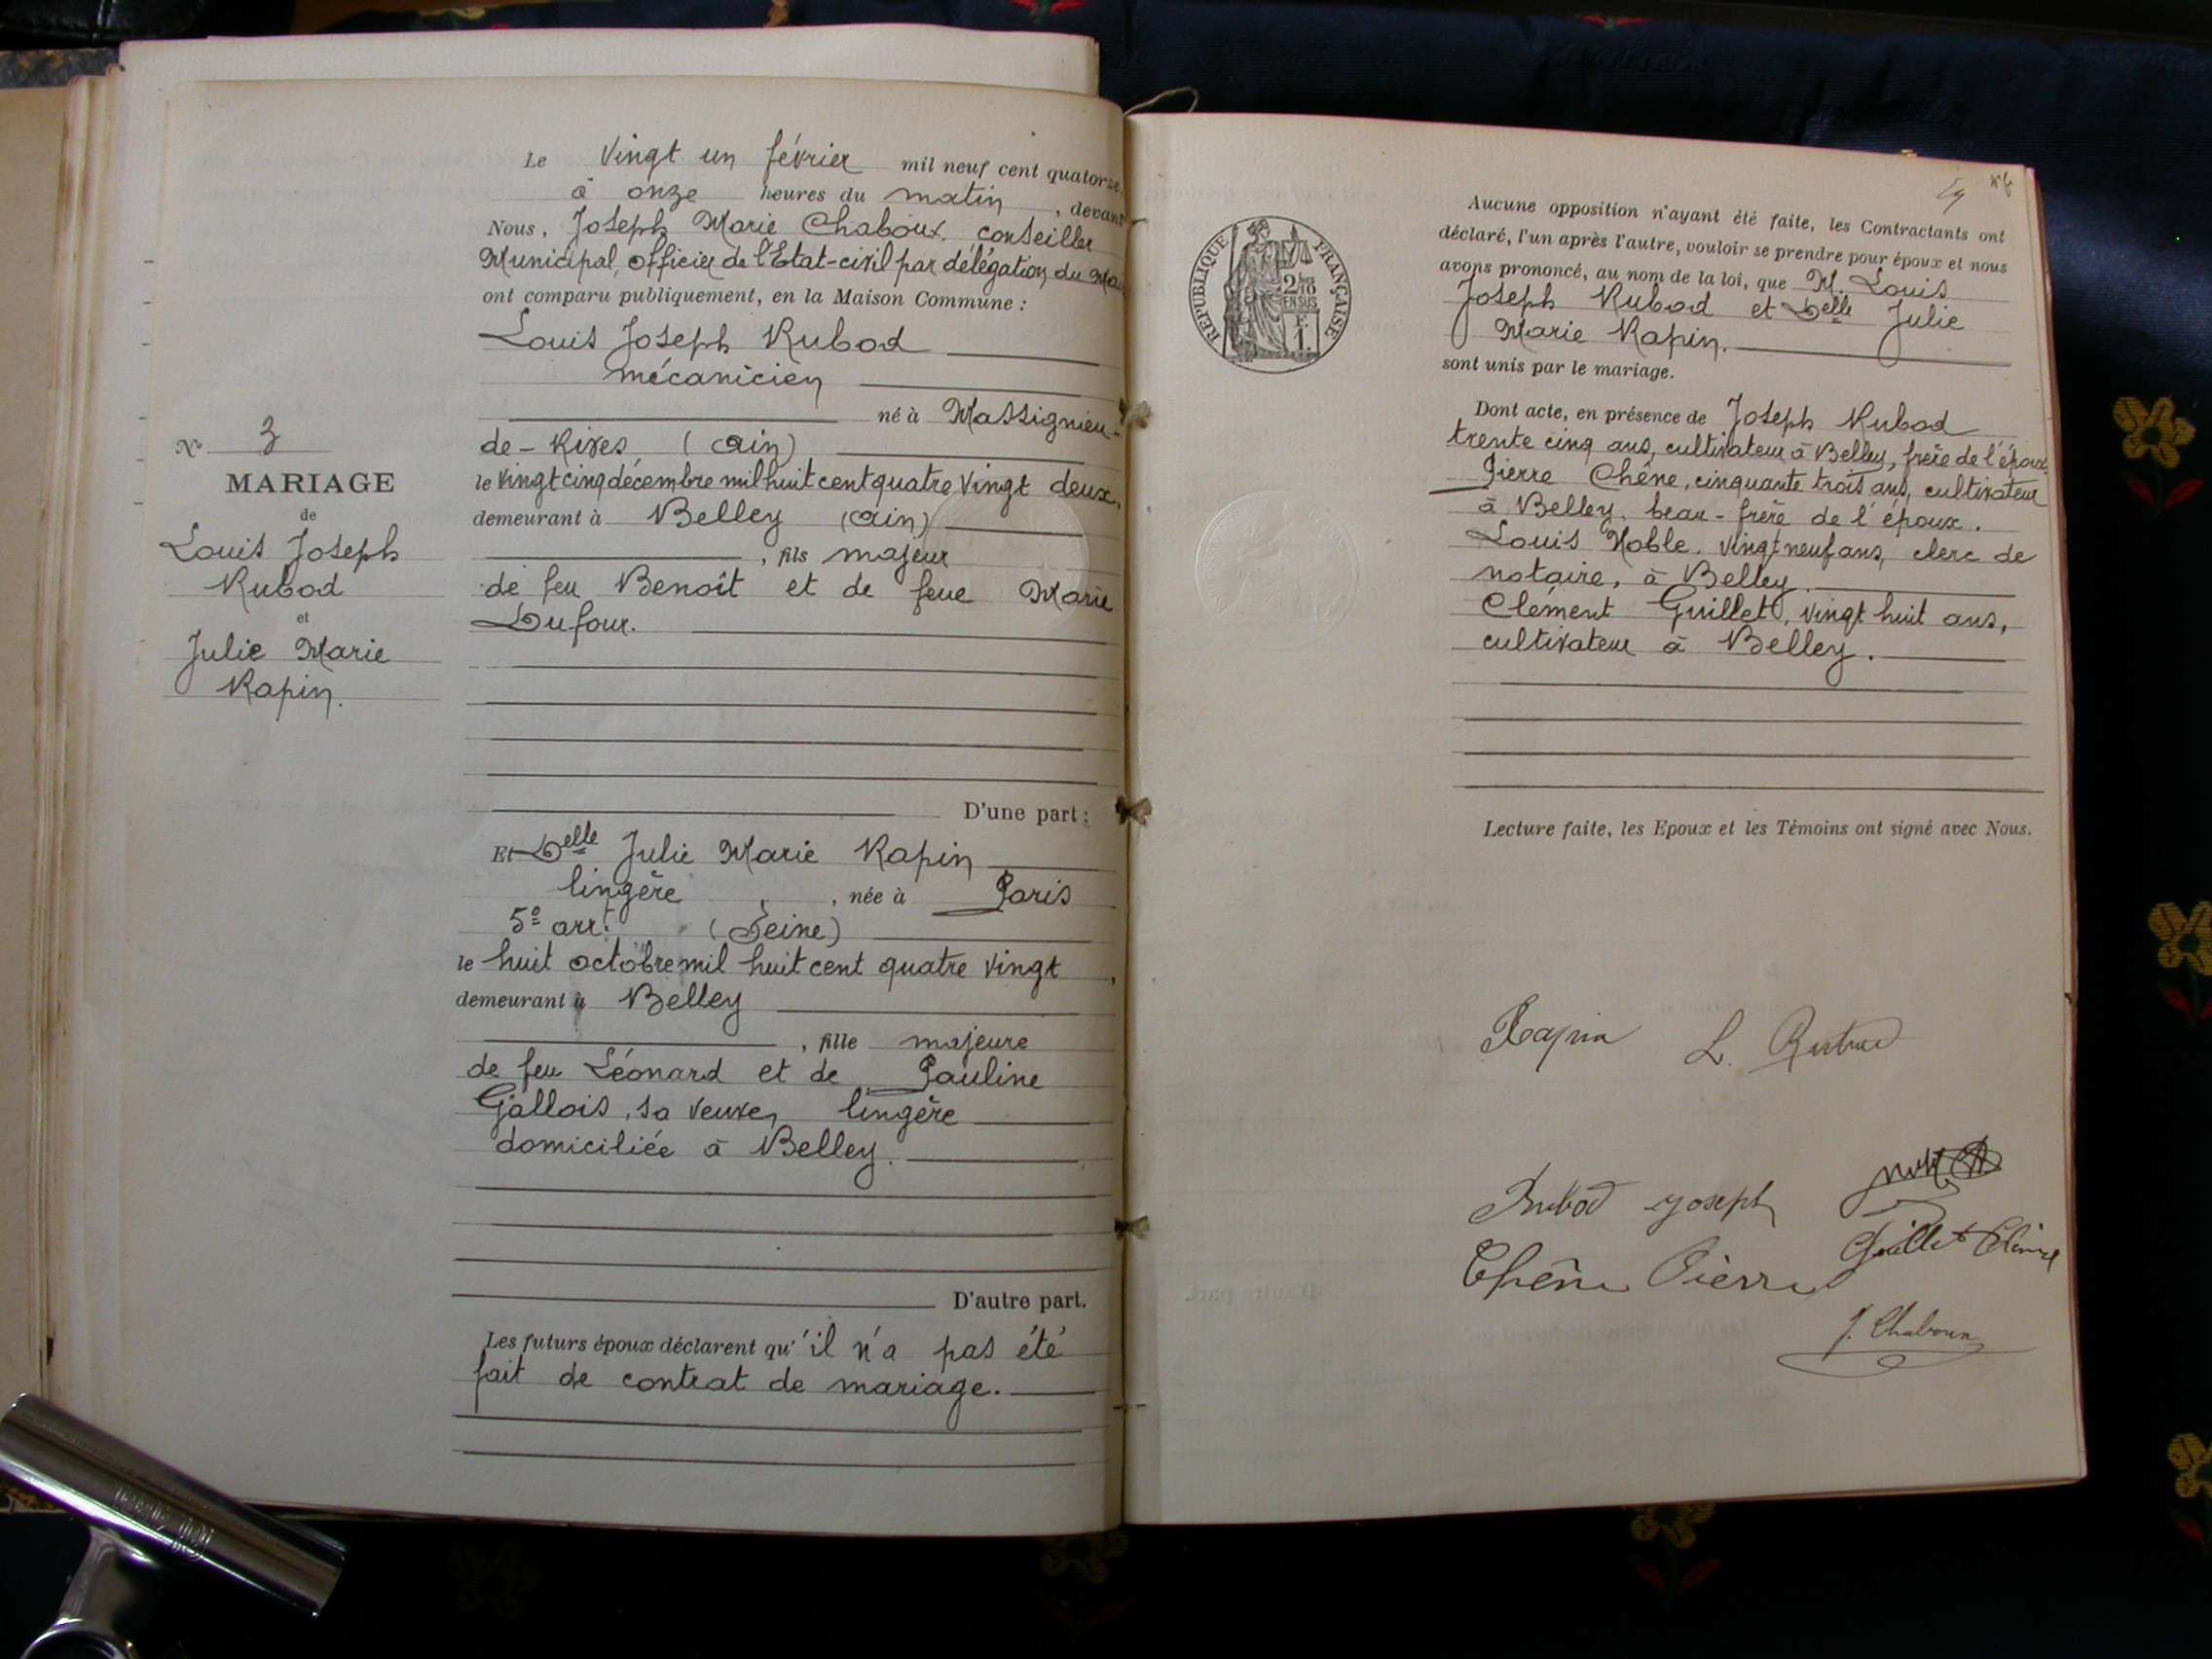 Le Vingt un février mil neuf cent quatorze,
à onze heures du matin, devant
Nous, Joseph Marie Chaboux, conseiller
Municipal, officier de l'Etat-civil par délégation du
ont comparu publiquement, en la Maison Commune :
Louis Joseph Rubod
mécanicien
né à Massignieu-
de-Rives, (Ain)
le vingt cinq décembre mil huit cent quatre vingt deux,
demeurant à Belley (Ain)
, fils majeur
de feu Benoît et de feue Marie
Dufour.
D'une part :
N° 3
MARIAGE
de
Louis Joseph
Rubod
et
Julie Marie
Rapin.
Et Delle Julie Marie Rapin
lingère, née à Paris
5e arrt (Seine)
le huit octobre mil huit cent quatre vingt,
demeurant à Belley
, fille majeure
de feu Léonard et de Pauline
Gallois, sa veuve, lingère
domiciliée à Belley.
D'autre part.
Les futurs époux déclarent qu'il n'a pas été
fait de contrat de mariage.
RÉPUBLIQUE FRANÇAISE
2 10
EN SUS
F.
1.
Aucune opposition n'ayant été faite, les Contractants ont
déclaré, l'un après l'autre, vouloir se prendre pour époux et nous
avons prononcé, au nom de la loi, que M. Louis
Joseph Rubod et Delle Julie
Marie Rapin.
sont unis par le mariage.
Dont acte, en présence de Joseph Rubod
trente cinq ans, cultivateur à Belley, frère de l'époux.
Pierre Chêne, cinquante trois ans, cultivateur
à Belley, beau-frère de l'époux.
Louis Noble, vingt neuf ans, clerc de
notaire, à Belley
Clément Guillet, vingt huit ans,
cultivateur à Belley.
Lecture faite, les Epoux et les Témoins ont signé avec Nous.
Rapin L. Rubod
Rubod Joseph
Guillet Clément
Chêne Pierre
J. Chaboux